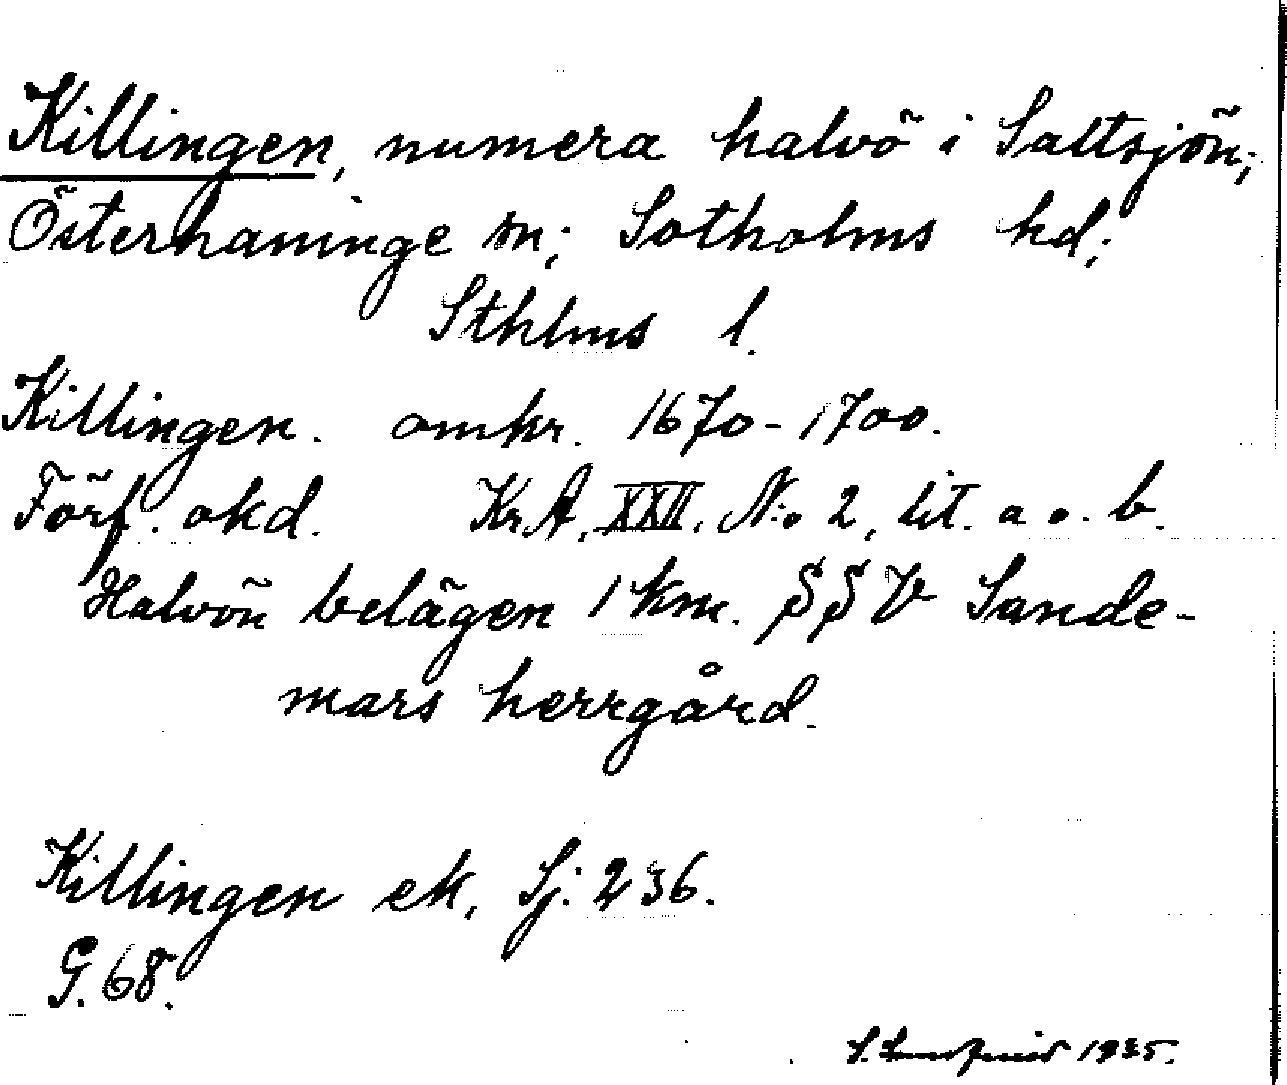 Killingen, numera halvö i Saltsjön;
Österhaninge sn; Sotholms hd;
Sthlms l.
Killingen. omkr. 1670-1700.
Förf. okd. KrA, XXII. N:o 2, lit. a o. b.
Halvön belägen 1 km. SSV Sande-
mars herrgård.
Killingen ek. Sj. 236.
G. 68.
S. 1935.